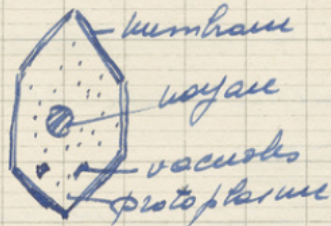 membrane
noyau
vacuoles
protoplasme